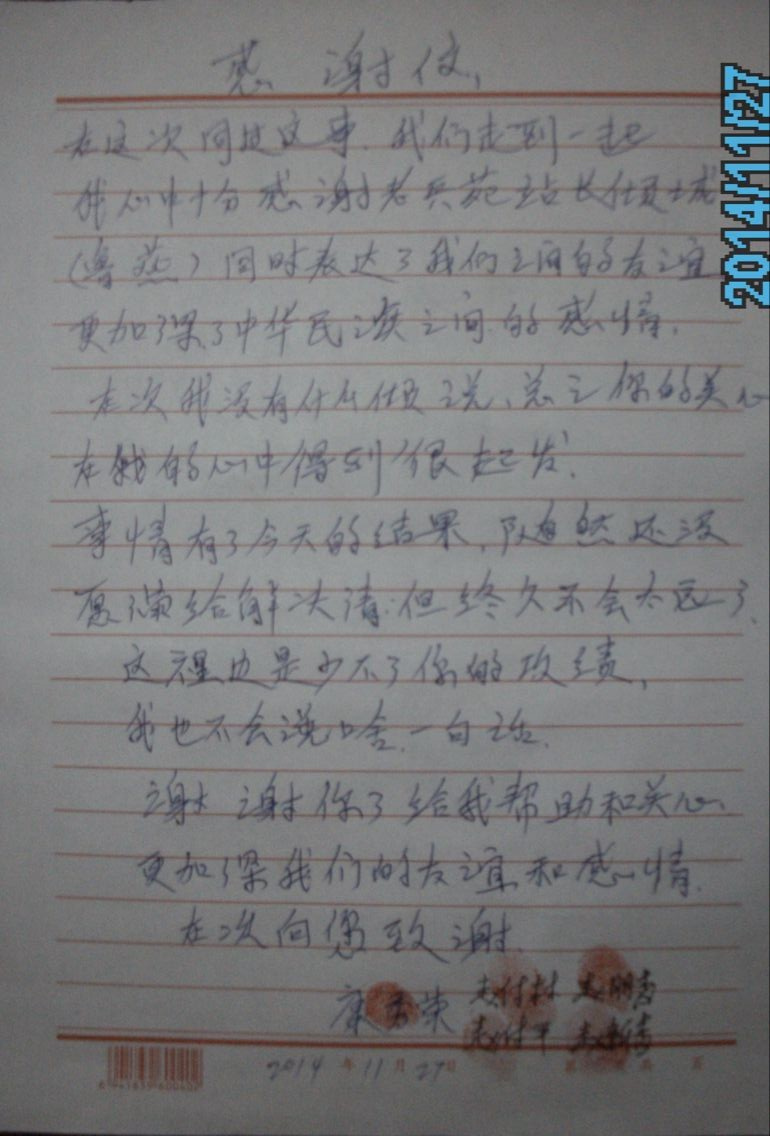 感谢信,
在这次同过这事.我们走到一起
我心中十分感谢老兵苑站长倾城
(鲁燕)同时表达了我们之间的友谊
更加深了中华民族之间的感情.
在次我没有什么倾说、总之你的关心
在我的心中得到很起发.
事情有了今天的结果,随然还没
给解决清.但终久不会太远了.
这里边是少不了你的攻绩,
我也不会说啥.一句话.
谢谢你了给我帮助和关心
更加深我们的友谊和感情.
在次向您致谢.
康 荣
2014年11月27日
2014/11/27